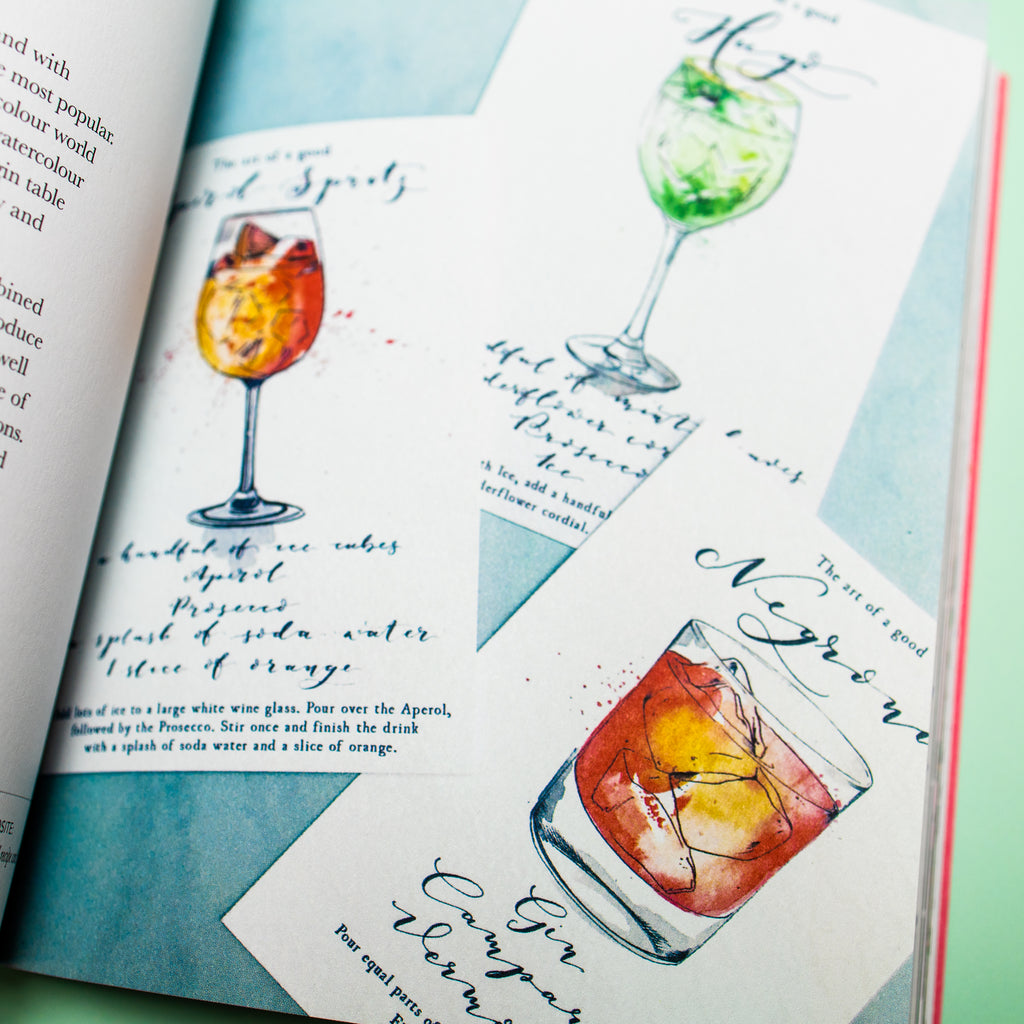 nd with
most popular.
colour world
watercolour
gin table
and
oduce
well
of
The art of a good
Spritz
a good
Hugo
handful of ice cubes
Aperol
Prosecco
splash of soda water
1 slice of orange
lots of ice to a large white wine glass. Pour over the Aperol,
followed by the Prosecco. Stir once and finish the drink
with a splash of soda water and a slice of orange.
of mint leaves
derflower cor
Prosecco
Ice
h Ice, add a handful
derflower cordial.
The art of a good
Negroni
Gin
Campar
Verm
Pour equal parts of